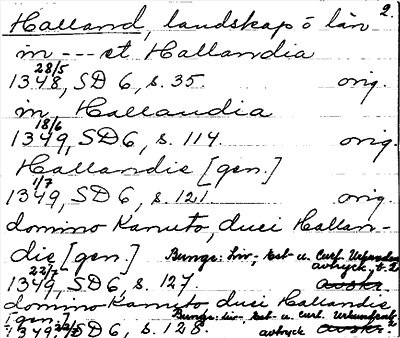 2.
Halland, landskap o län
in --- et Hallandia
1348 28/5, SD 6, s. 35. orig.
in Hallandia
1349 18/6, SD 6, s. 114. orig.
Hallandie [gen.]
1349 1/7, SD 6, s. 121. orig.
domino Kanuto, duci Hallan-
die [gen.] Bunge: Liv-, Est- u. Curl. Urkunden
avtryck, b. 2
1349 22/7, SD 6, s. 127. avskr.
domino Kanuto duci Hallandie
[gen.] Bunge: Liv-, Est- u. Curl. Urkundenb. 2
1349 22/7 SD 6, s. 128. avtryck avskr.